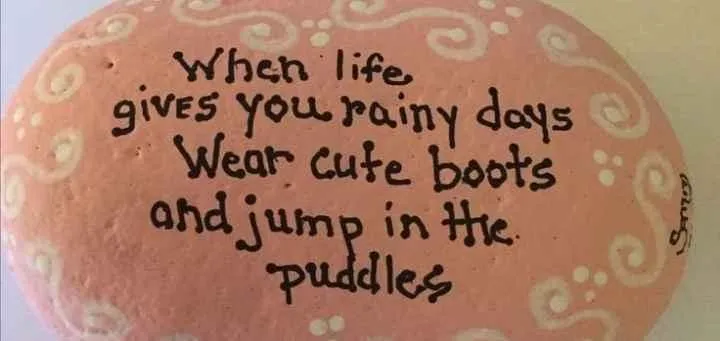 When life
gives you rainy days
Wear cute boots
and jump in the
puddles